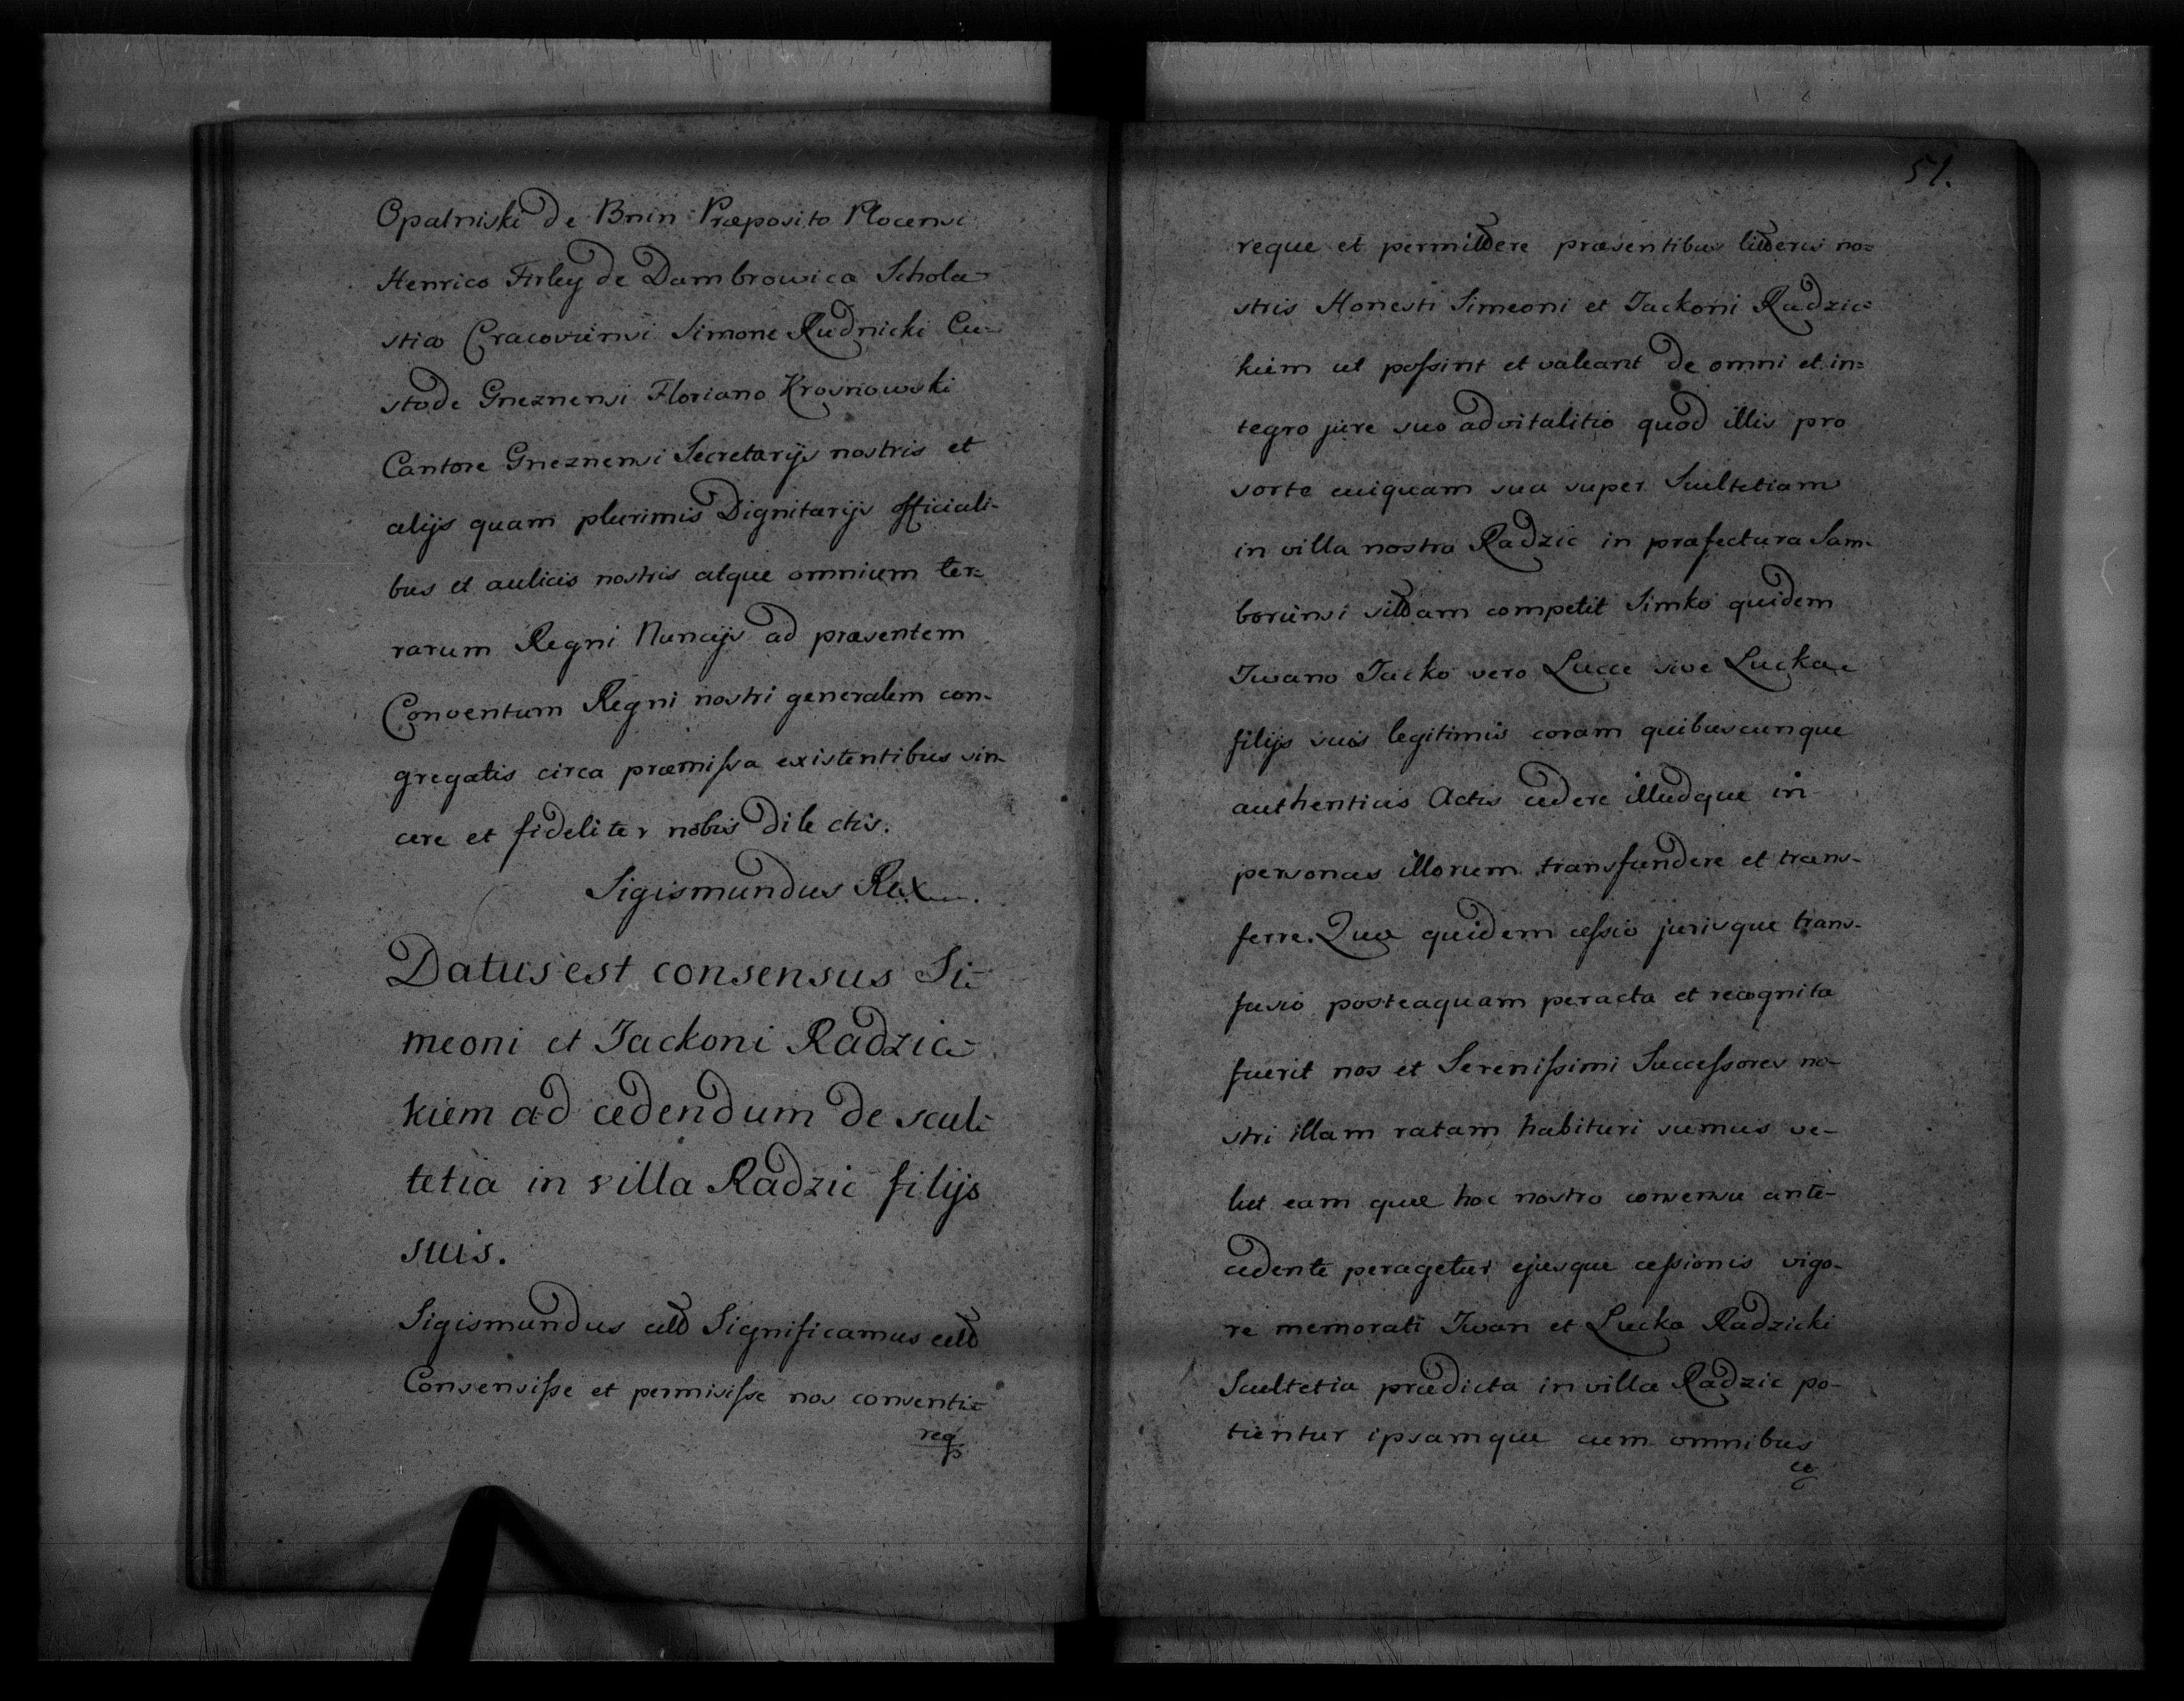 Opalniski de Bnin Præposito Plocensi
Henrico Firley de Dambrowica Schola-
stico Cracoviensi Simone Rudnicki Cu-
stode Gneznensi Floriano Krosnowski
Cantore Gneznensi Secretarijs nostris et
alijs quam plurimis Dignitarijs officiali-
bus et aulicis nostris atque omnium ter-
rarum Regni Nuncijs ad præsentem
Conventum Regni nostri generalem con-
gregatis circa præmissa existentibus sin-
cere et fideliter nobis dilectis.
Sigismundus Rex
Datus est consensus Si-
meoni et Jackoni Radzic-
kiem ad cedendum de scul-
tetia in villa Radzic filijs
suis.
Sigismundus Significamus
Consensisse et permisisse nos consenti-
req
51.
reque et permittere præsentibus litteris no-
stris Honesti Simeoni et Jackoni Radzic-
kiem ut possint et valeant de omni et in-
tegro jure suo advitalitio quod illis pro
sorte cuiquam sua super Scultetiam
in villa nostra Radzic in præfectura Sam-
boriensi sittam competit Simko quidem
Iwano Jacko vero Lucce sive Luckae
filijs suis legitimis coram quibuscunque
authenticis Actis cedere illudque in
personas illorum transfundere et trans-
ferre. Quæ quidem cessio jurisque trans-
fusio posteaquam peracta et recognita
fuerit nos et Serenissimi Successores no-
stri illam ratam habituri sumus ve-
lut eam quæ hoc nostro consensu ante-
cedente peragetur ejusque cessionis vigo-
re memorati Iwan et Lucka Radzicki
Scultetia prædicta in villa Radzic po-
tientur ipsamque cum omnibus